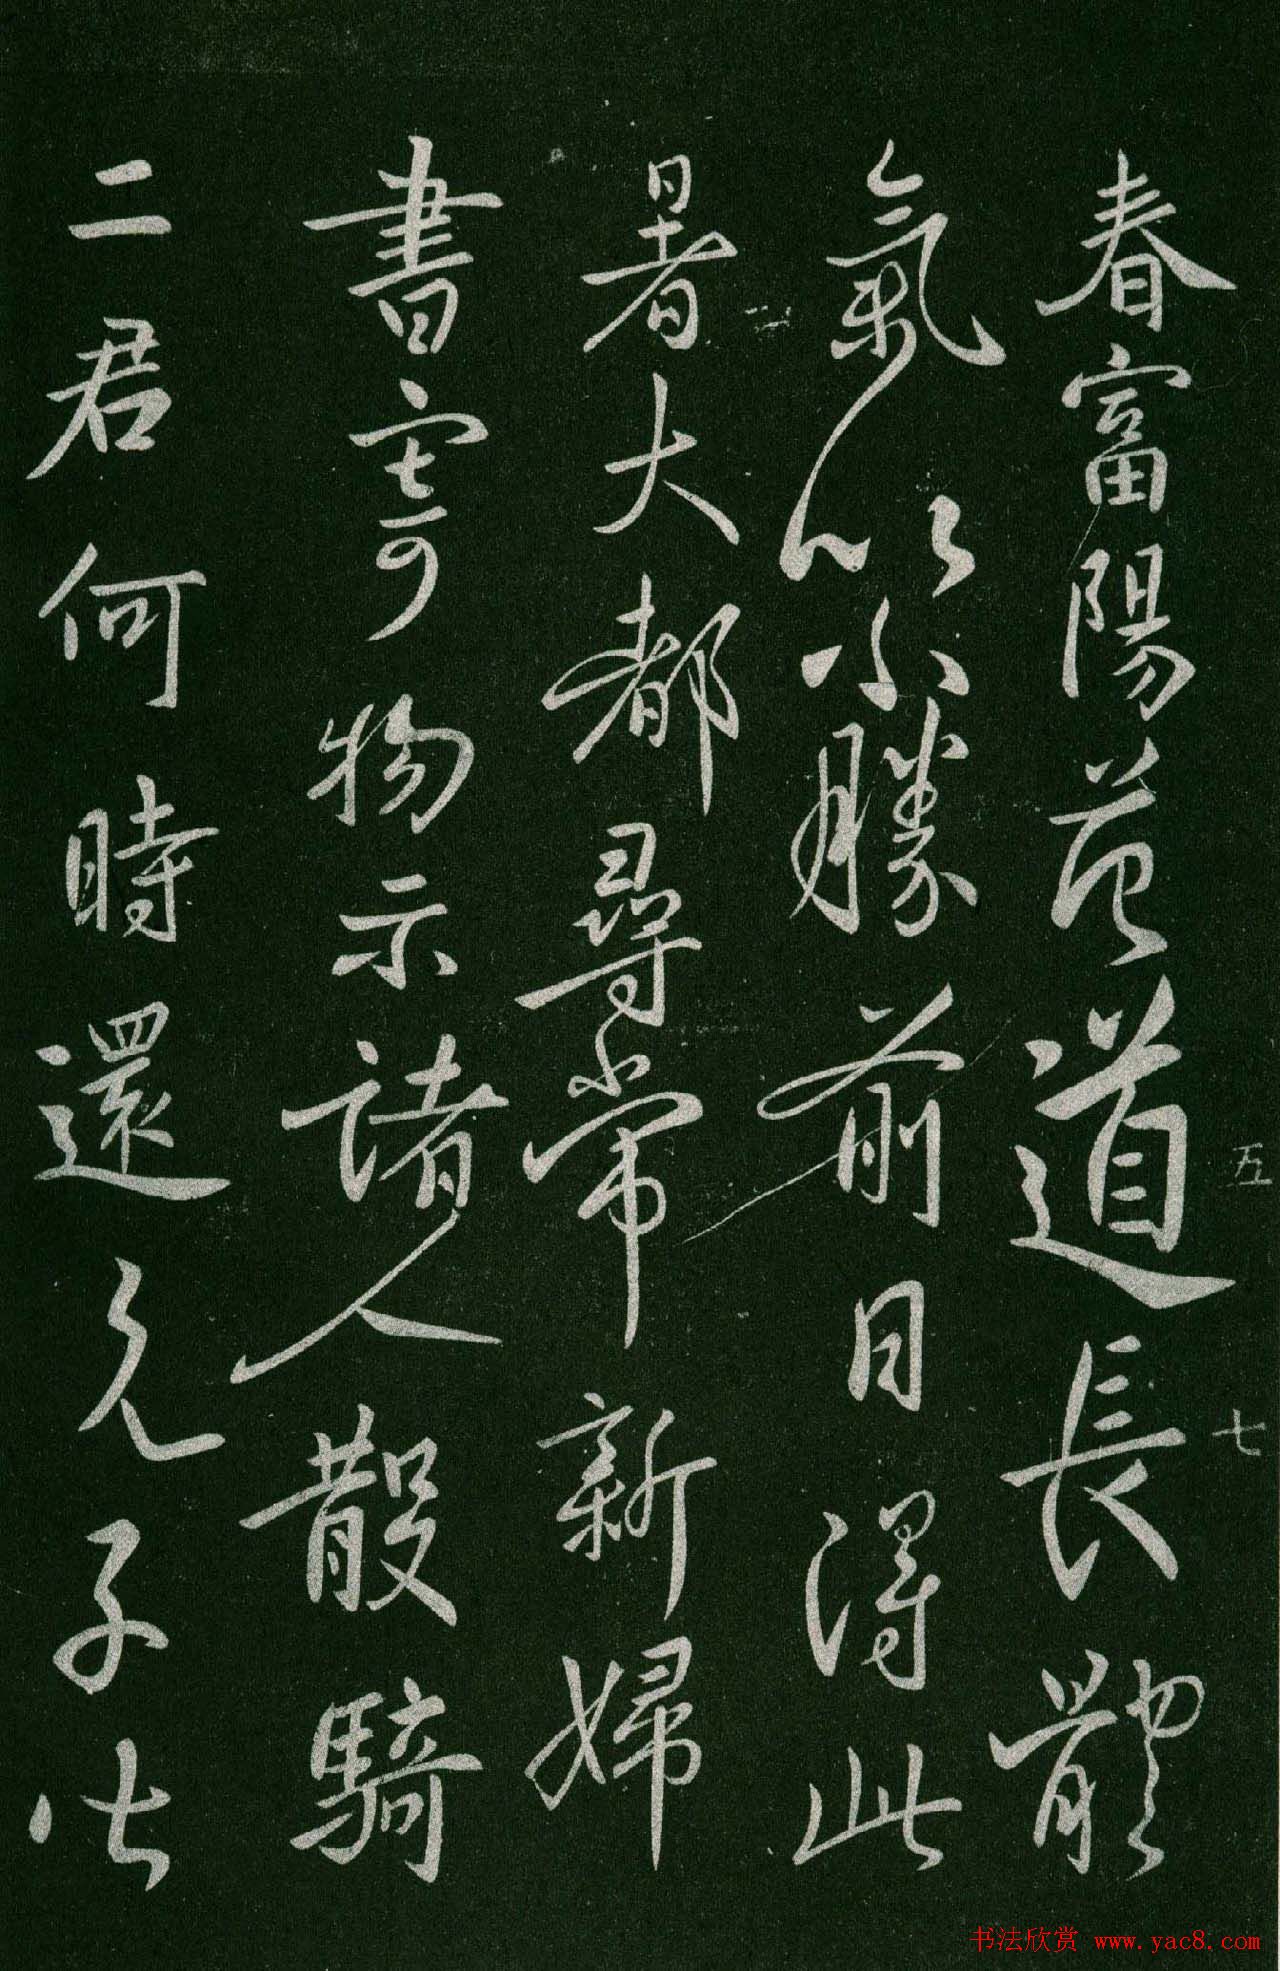 春富陽范道長體
氣以不勝前日得此
暑大都尋常新婦
書寄物示諸人散騎
二君何時還兄子比
五
七
书法欣赏 www.yac8.com